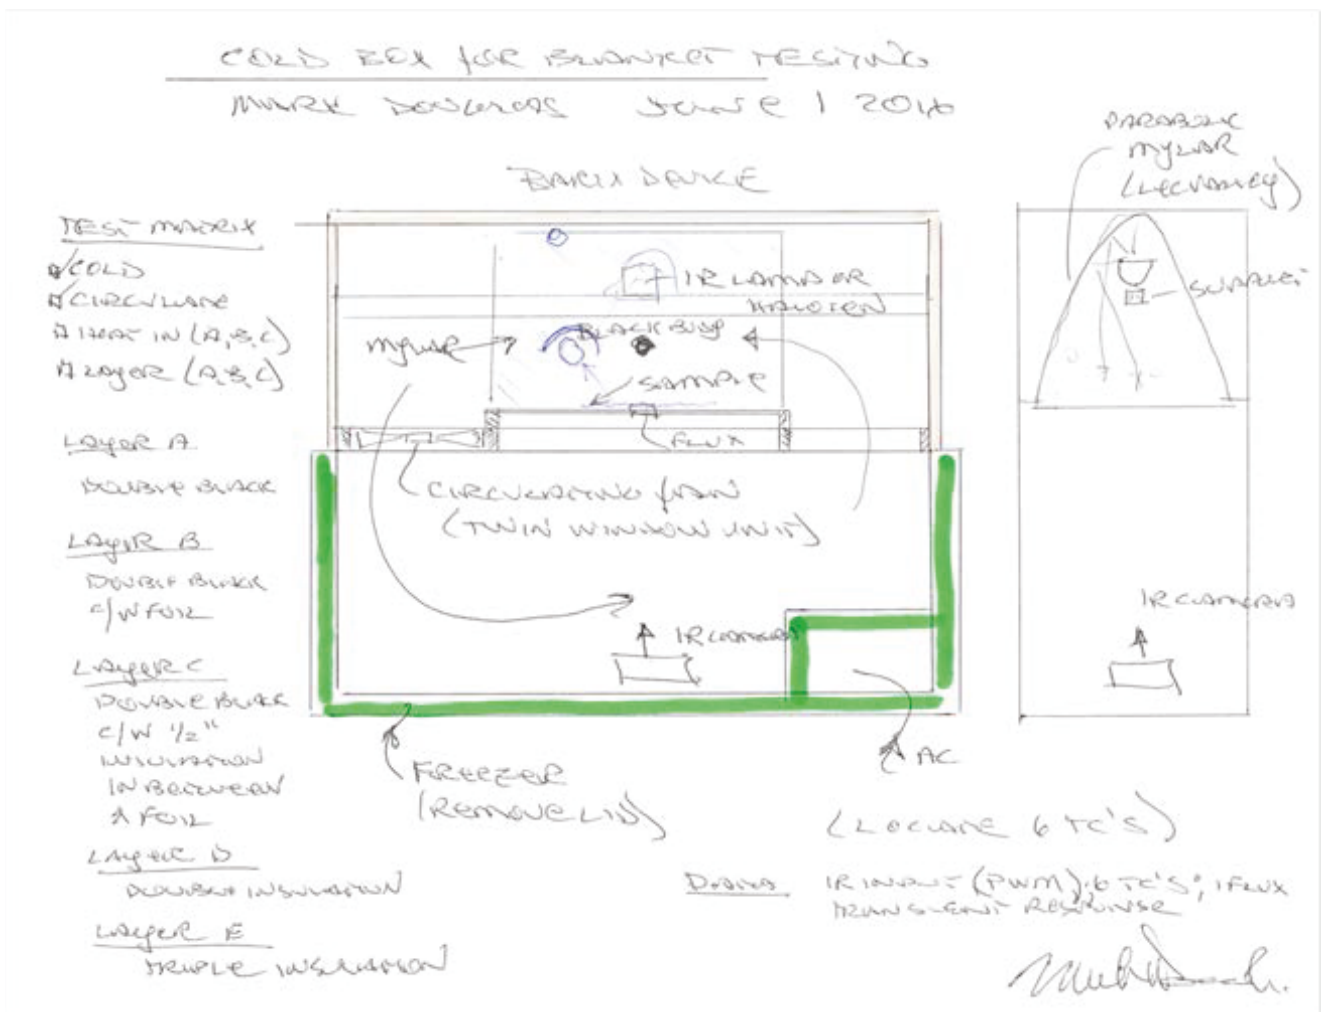 COLD BOX FOR BLANKET TESTING
MARK DOUGLAS JUNE 1 2016
TEST MATRIX
COLD
CIRCULATE
HEAT IN (A,B,C)
LAYER (A,B,C)
LAYER A
DOUBLE BLACK
LAYER B
DOUBLE BLACK
C/W FOIL
LAYER C
DOUBLE BLACK
C/W 1/2"
INSULATION
IN BETWEEN
& FOIL
LAYER D
DOUBLE INSULATION
LAYER E
TRIPLE INSULATION
IR LAMP OR
HALOGEN
BLACK BODY
MYLAR
SAMPLE
FLUX
CIRCULATING FAN
(TWIN WINDOW UNIT)
IR CAMERA
AC
FREEZER
(REMOVE LID)
(LOCATE 6 TC'S)
DATA IR INPUT (PWM), 6 TC'S, 1 FLUX
TRANSIENT RESPONSE
PARABOLIC
MYLAR
SUPPORT
IR CAMERA